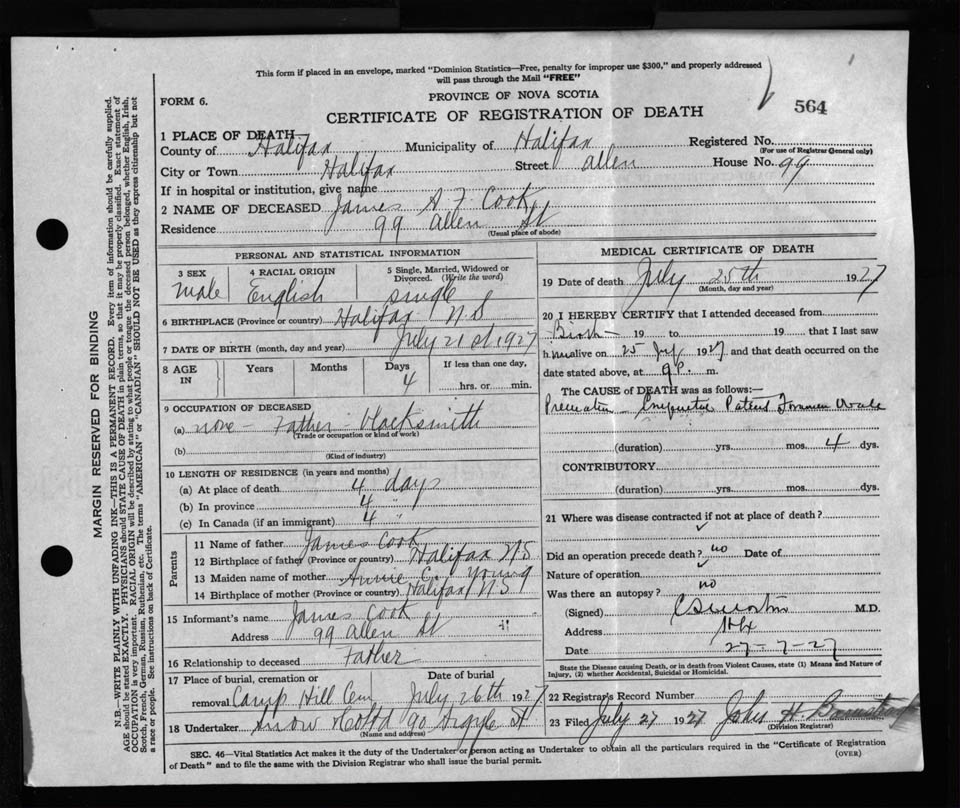 This form if placed in an envelope, marked "Dominion Statistics—Free, penalty for improper use $300," and properly addressed
will pass through the Mail "FREE"
PROVINCE OF NOVA SCOTIA
564
FORM 6.
CERTIFICATE OF REGISTRATION OF DEATH
1 PLACE OF DEATH
County of Halifax Municipality of Halifax Registered No.
(For use of Registrar General only)
City or Town Halifax Street Allen House No. 99
If in hospital or institution, give name
2 NAME OF DECEASED James A F. Cook
Residence 99 Allen St
(Usual place of abode)
PERSONAL AND STATISTICAL INFORMATION
3 SEX 4 RACIAL ORIGIN 5 Single, Married, Widowed or
Divorced. (Write the word)
Male English single
6 BIRTHPLACE (Province or country) Halifax N S
7 DATE OF BIRTH (month, day and year) July 21st 1927
8 AGE IN Years Months Days If less than one day,
4 hrs. or min.
9 OCCUPATION OF DECEASED
(a) none - Father - blacksmith
(Trade or occupation or kind of work)
(b)
(Kind of industry)
10 LENGTH OF RESIDENCE (in years and months)
(a) At place of death 4 days
(b) In province 4 "
(c) In Canada (if an immigrant) 4 "
Parents
11 Name of father James Cook
12 Birthplace of father (Province or country) Halifax N S
13 Maiden name of mother Annie C. Young
14 Birthplace of mother (Province or country) Halifax N S
15 Informant's name James Cook
Address 99 Allen St
16 Relationship to deceased Father
17 Place of burial, cremation or Date of burial
removal Camp Hill Cem July 26th 1927
18 Undertaker Snow & Co Ltd 90 Argyle St
(Name and address)
MEDICAL CERTIFICATE OF DEATH
19 Date of death July 25th 1927
(Month, day and year)
20 I HEREBY CERTIFY that I attended deceased from
Birth 19 to 19 that I last saw
him alive on 25 July 1927 and that death occurred on the
date stated above, at 9 P. m.
The CAUSE of DEATH was as follows:—
Patent Foramen Ovale
(duration) yrs. mos. 4 dys.
CONTRIBUTORY
(duration) yrs. mos. dys.
21 Where was disease contracted if not at place of death?
Did an operation precede death? no Date of
Nature of operation
Was there an autopsy? no
(Signed) M.D.
Address Hfx
Date 27-7-27
State the Disease causing Death, or in death from Violent Causes, state (1) Means and Nature of
Injury, (2) whether Accidental, Suicidal or Homicidal.
22 Registrar's Record Number
23 Filed July 27 1927 John H
(Division Registrar)
SEC. 46—Vital Statistics Act makes it the duty of the Undertaker or person acting as Undertaker to obtain all the particulars required in the "Certificate of Registration
of Death" and to file the same with the Division Registrar who shall issue the burial permit. (OVER)
MARGIN RESERVED FOR BINDING
N.B.—WRITE PLAINLY WITH UNFADING INK—THIS IS A PERMANENT RECORD. Every item of information should be carefully supplied.
AGE should be stated EXACTLY. PHYSICIANS should STATE CAUSE OF DEATH in plain terms, so that it may be properly classified. Exact statement of
OCCUPATION is very important. RACIAL ORIGIN will be described by stating to what people or tongue the deceased person belonged, whether English, Irish,
Scotch, French, German, Russian, Ruthenian, etc. The terms "AMERICAN" or "CANADIAN" SHOULD NOT BE USED as they express citizenship but not
a race or people. See instructions on back of Certificate.